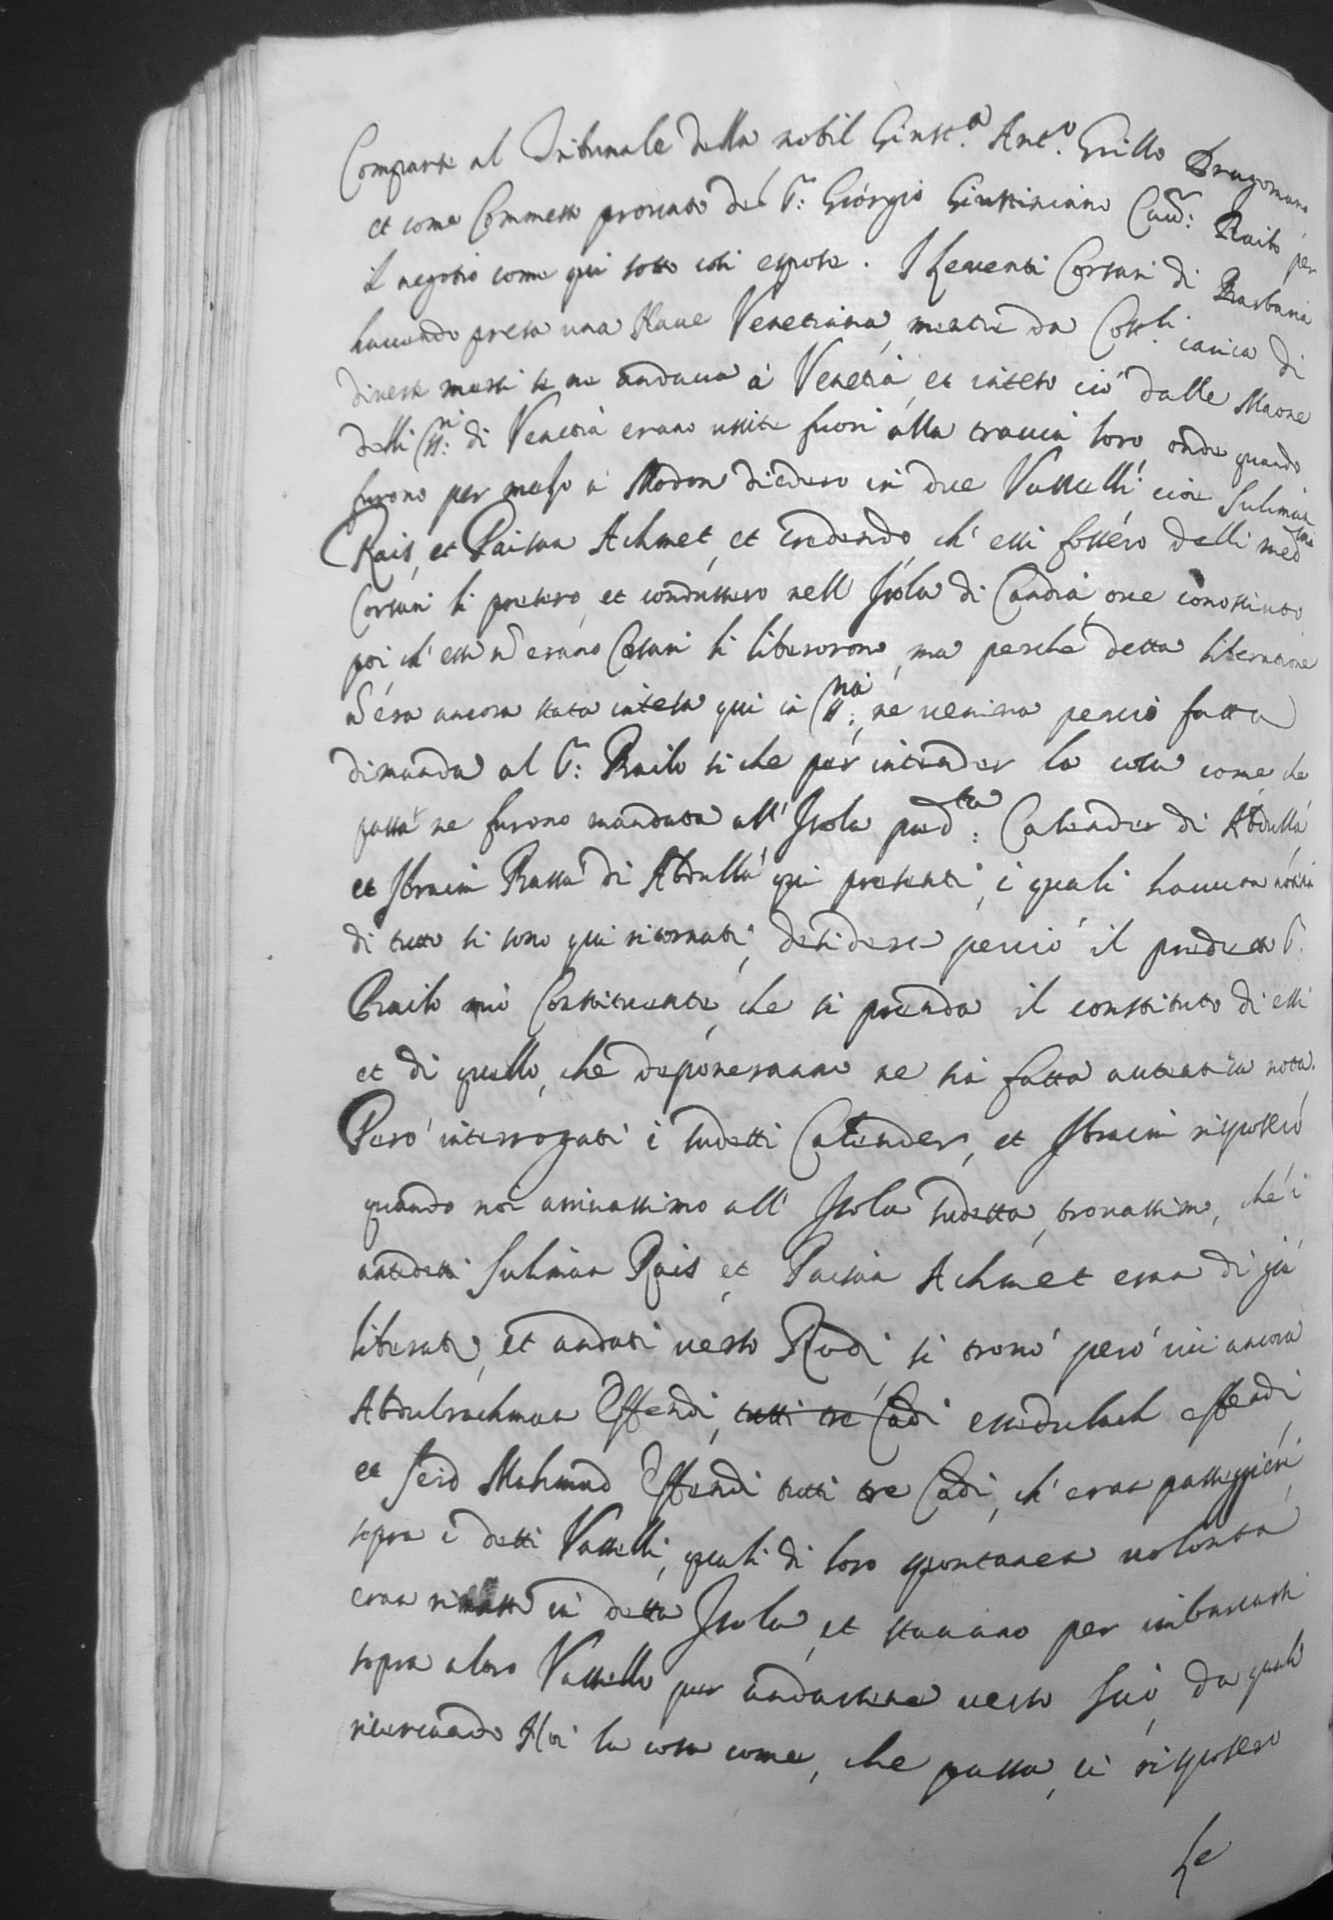 Comparse al Tribunale della nobil Giust.a Ant.o Grillo Dragomano
et come Commesso provato del S.r Giorgio Giustiniano Cau.r Bailo per
il negotio come qui sotto cosi espose. I Leventi Corsari di Barbaria
havendo presa una Naue Venetiana, mentre da Cost.li carica di
diverse merci se ne andava à Venetia, et inteso ciò dalle Maone
delli SS.ri di Venetia erano uscite fuori alla traccia loro, onde quando
furono per mezo a Modon diedero in due Vasselli cioè Suliman
Rais, et Paisan Achmet, et credendo, ch'essi fossero delli med.mi
Corsari li presero, et condussero nell'Isola di Candia, ove conosciuto
poi, ch'essi nõ erano Corsari li liberorono, ma perche detta liberatione
nõ era ancora stata intesa qui in Cost.; ne veniva perciò fatta
dimanda al S.r Bailo si che per intender la cosa come che
passa ne furono mandati all'Isola pred.ta: Calender di Abdulla
et Ibraim Bassa di Abdulla qui presenti, i quali havuta notitia
di tutto si sono qui ritornati, desidera perciò il predetto S.r
Bailo mio Constituente, che si prenda il constituto di essi
et di quello, che deponeranno ne sia fatta autentica nota.
Però interrogati i sudetti Calender, et Ibraim risposero
quando noi arrivassimo all'Isola sudetta, trovassimo, che i
antedetti Suliman Rais, et Paisan Achmet eran di già
liberati, et andati verso Rodi, si trovò però ivi ancora
Abdulrachman Effendi, tutti tre Cadi essedulach effendi
et Seid Mahmud Effendi tutti tre Cadi, ch'eran passeggieri
sopra i detti Vasselli, quali di loro spontanea volontà
eran rimasti in detta Isola, et stavano per imbarcarsi
sopra altro Vassello per andarsene verso Scio, da quali
ricercando Noi la cosa come, che passa, ci risposero
Le